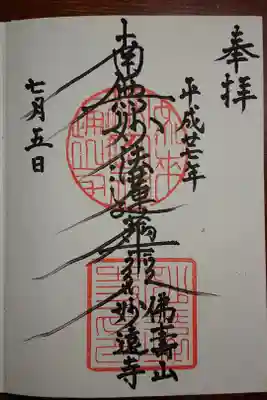 奉拝
平成廿二年
南無妙法蓮華経
佛壽山
妙遠寺
七月五日